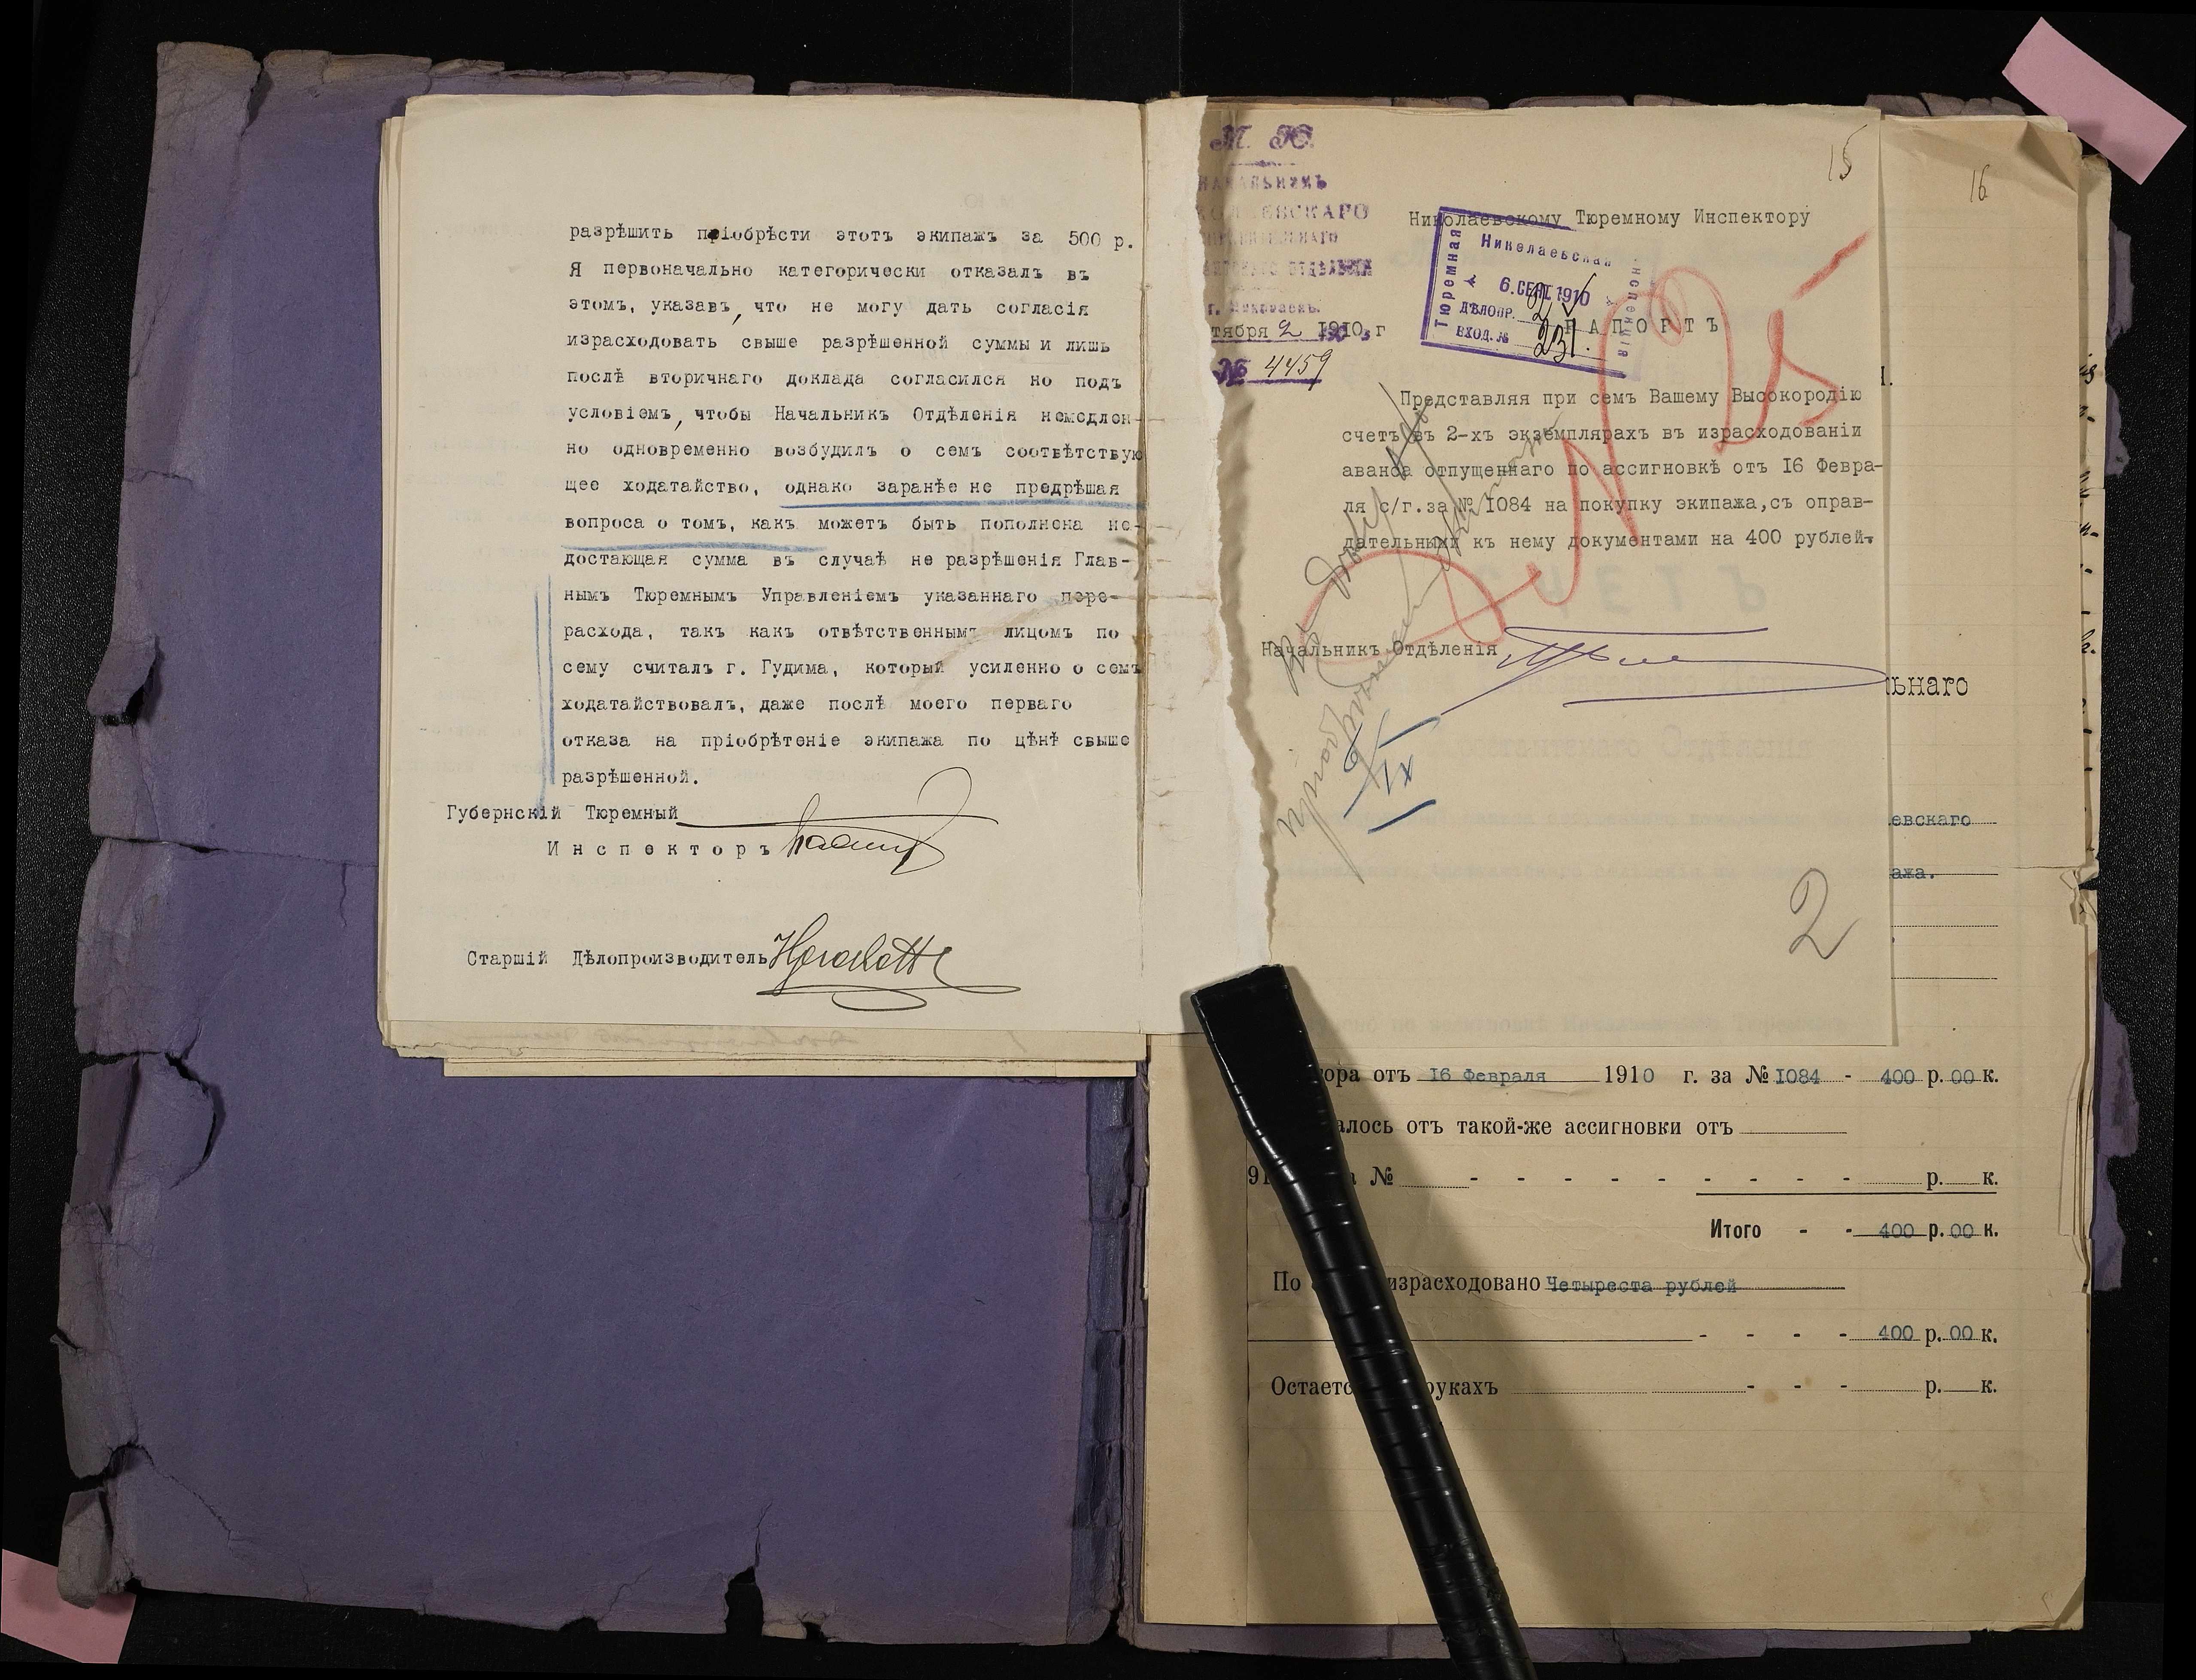 разрѣшить пріобрѣсти этотъ экипажъ за 500 р.
Я первоначально категорически отказалъ въ
этомъ, указавъ, что не могу дать согласія
израсходовать свыше разрѣшенной суммы и лишь
послѣ вторичнаго доклада согласился но подъ
условіемъ, чтобы Начальникъ Отдѣленія немедлен-
но одновременно возбудилъ о семъ соотвѣтствую
щее ходатайство, однако заранѣе не предрѣшая
вопроса о томъ, какъ можетъ быть пополнена не-
достающая сумма въ случаѣ не разрѣшенія Глав-
нымъ Тюремнымъ Управленіемъ указаннаго пере-
расхода, такъ какъ отвѣтственнымъ лицомъ по
сему считалъ г. Гудима, который усиленно о семъ
ходатайствовалъ, даже послѣ моего перваго
отказа на пріобрѣтеніе экипажа по цѣнѣ свыше
разрѣшенной.
Губернскій Тюремный
Инспекторъ
Старшій Дѣлопроизводитель
М. Ю.
НАЧАЛЬНИКЪ
ЕВСКАГО
ОТДѢЛЕНІЯ
г. Николаевъ.
тября 2 1910 г
№ 4459
15
Николаевскому Тюремному Инспектору
Николаевская
Тюремная
Инспекція
6. СЕН. 1910
ДѢЛОПР. 2
ВХОД. № 231.
РАПОРТЪ
Представляя при семъ Вашему Высокородію
счетъ въ 2-хъ экземплярахъ въ израсходованіи
аванса отпущеннаго по ассигновкѣ отъ 16 Февра-
ля с/г. за № 1084 на покупку экипажа, съ оправ-
дательными къ нему документами на 400 рублей.
Начальникъ Отдѣленія
6/IX
2
16
льнаго
евскаго
ажа.
ора отъ 16 Февраля 1910 г. за № 1084 - 400 р. 00 к.
алось отъ такой-же ассигновки отъ
91 № - - - - - - - - - р. к.
Итого - - 400 р. 00 к.
По израсходовано Четыреста рублей
- - - - 400 р. 00 к.
Остает рукахъ - - - р. к.